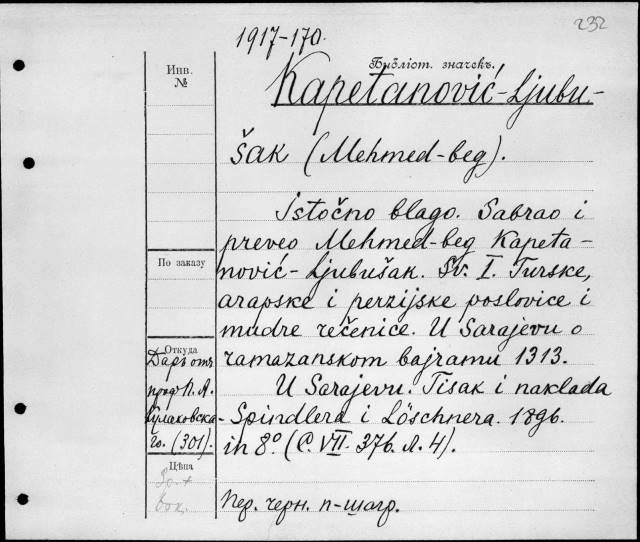 232
1917-170.
Библіот. значекъ.
Инв.
№
Kapetanović-Ljubu-
šak (Mehmed-beg).
Istočno blago. Sabrao i
preveo Mehmed-beg Kapeta-
nović-Ljubušak. Sv. I. Turske,
arapske i perzijske poslovice i
mudre rečenice. U Sarajevu o
ramazanskom bajramu 1313.
U Sarajevu. Tisak i naklada
Spindlera i Löschnera. 1896.
in 8º. (C. VII. 376. л. 4).
Пер. черн. п-шагр.
По заказу
Откуда
Даръ отъ
проф. П. А.
Кулаковска-
го. (301).
Цѣна